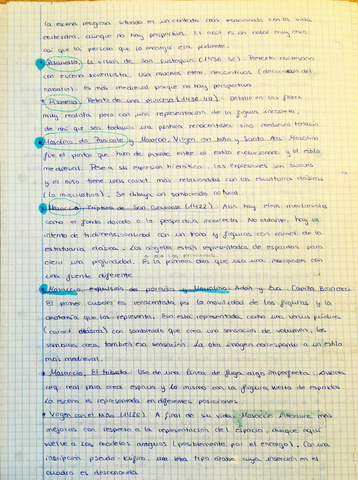 la escena religiosa situada en un contexto más relacionado con la vida
cotidiana, aunque no hay perspectiva. Es aquí un nobel muy rico
así que la persona que lo encargó era pudiente.
• Pisanello, la visión de San Eustaquio (1436-38). Pequeño
con escena cortesana, usa muchos elem. decorativos (decoración del
caballo). Es más medieval porque no hay perspectiva
• Pisanello. Retrato de una princesa (1438-40). Detalle en las flores
muy realista pero con una representación de la figura
de ahí que sea todavía una pintura renacentista sino medieval todavía
• Masolino da Panicale y Masaccio, Virgen con Niño y Santa Ana. Masolino
fue el pintor que hizo de puente entre el estilo evolucionado y el estilo
medieval. Pese a su expresión hierática, las expresiones son suaves
y el niño tiene unas caract. más relacionadas con las esculturas clásicas
(la musculatura). Se dibuja un sombreado natural
• Masaccio, Tríptico de San Giovenale (1422). Aún hay elem. medievales
como el fondo dorado o la perspectiva incorrecta. No obstante, hay un
intento de tridimensionalidad con un trono y figuras con caract. de la
estatuaria clásica. Los ángeles están representados de espaldas para
crear una profundidad. Es la primera obra que usa una inscripción con
una fuente diferente
• Masaccio, expulsión del paraíso y Masolino, Adán y Eva. Capilla Brancacci
El primer cuadro es renacentista por la movilidad de las figuras y la
anatomía que los representa. Eva está representada como una venus púdica
(caract. clásica) con sombreado que crea una sensación de volumen, las
sombras crea también esa sensación. La otra imagen corresponde a un estilo
más medieval.
• Masaccio, El tributo. Uso de una línea de fuga algo imperfecta. Inserta
arq. real para crear espacio y lo mismo con la figura vuelta de espaldas
La escena es representada en diferentes posiciones.
• Virgen con el Niño (1426). A final de su vida, Masaccio introduce más
mejoras con respecto a la representación del espacio, aunque aquí
vuelve a los modelos antiguos (posiblemente por el encargo). Con una
inscripción pseudo-kúfica, una letra tipo árabe cuya inserción en el
cuadro es desconocida